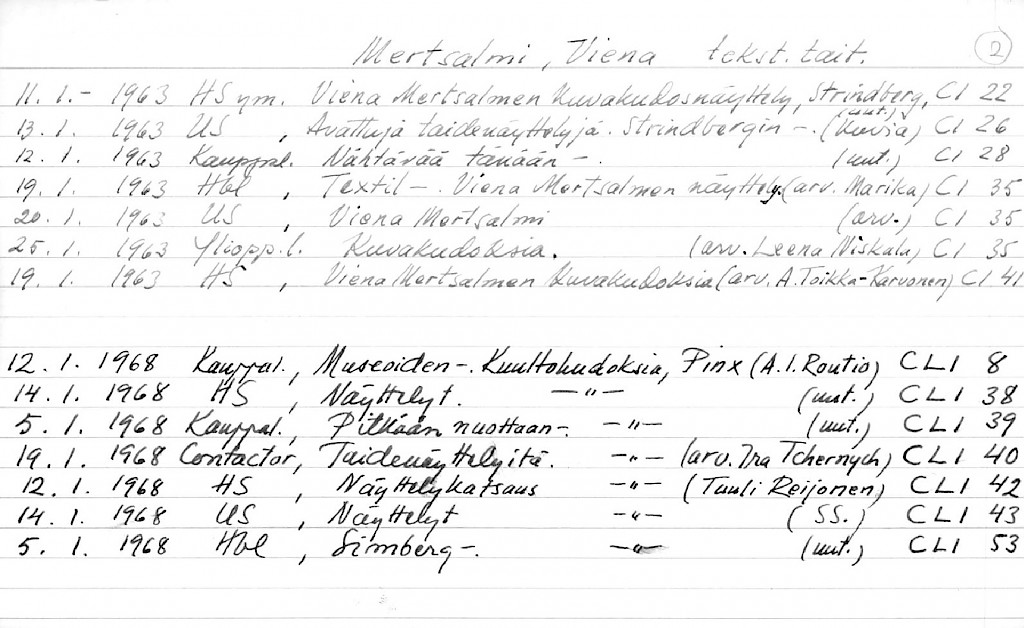 Mertsalmi, Viena tekst. tait. 2
11. 1. - 1963 HS ym. Viena Mertsalmen Kuvakudosnäyttely, Strindberg, CI 22
(uut.)
13. 1. 1963 US , Avattuja taidenäyttelyjä. Strindbergin -. (Kuvia) CI 26
12. 1. 1963 Kauppal. Nähtävää tänään -. (uut.) CI 28
19. 1. 1963 Hbl , Textil -. Viena Mertsalmen näyttely. (arv. Marika) CI 35
20. 1. 1963 US , Viena Mertsalmi (arv.) CI 35
25. 1. 1963 Yliopp. l. Kuvakudoksia. (arv. Leena Niskala) CI 35
19. 1. 1963 HS , Viena Mertsalmen Kuvakudoksia (arv. A. Toikka-Karvonen) CI 41
12. 1. 1968 Kauppal., Museoiden -. Kuultokudoksia, Pinx (A. I. Routio) CLI 8
14. 1. 1968 HS , Näyttelyt. -"- (uut.) CLI 38
5. 1. 1968 Kauppal., Pitkään nuottaan -. -"- (uut.) CLI 39
19. 1. 1968 Contactor, Taidenäyttelyitä. -"- (arv. Ina Tchernych) CLI 40
12. 1. 1968 HS , Näyttelykatsaus -"- (Tuuli Reijonen) CLI 42
14. 1. 1968 US , Näyttelyt -"- (SS.) CLI 43
5. 1. 1968 Hbl , Simberg -. -"- (uut.) CLI 53